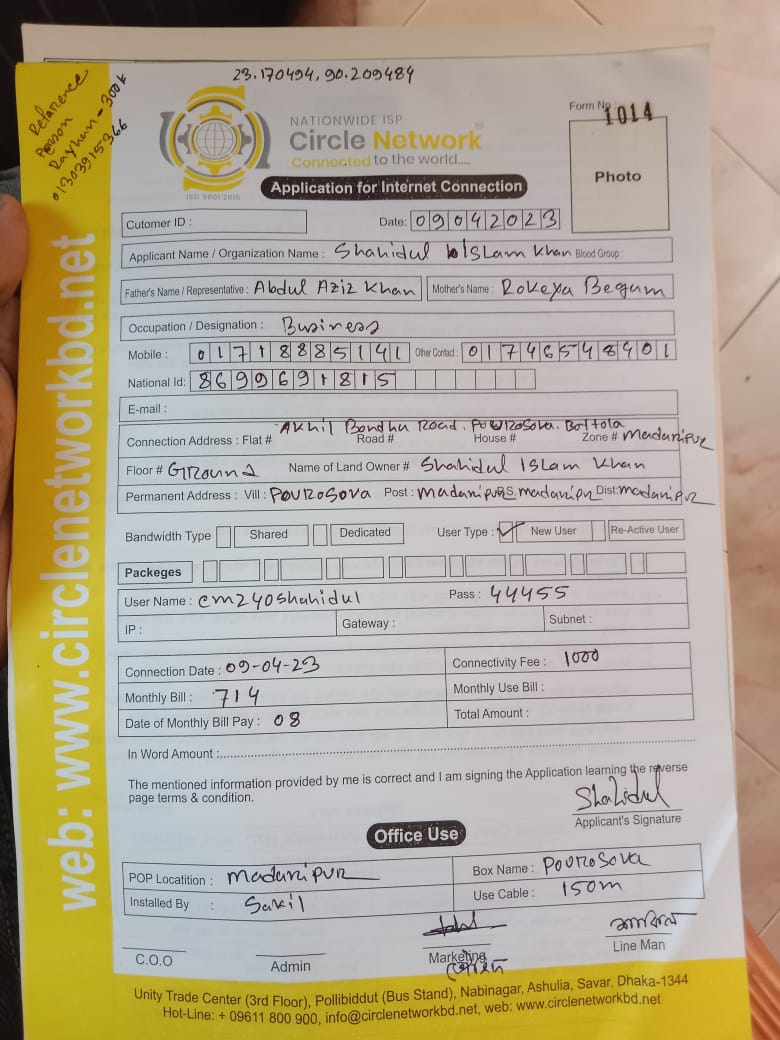 23.170494, 90.209484
Referience
Person
Rayhan - 300tk
01303915366
NATIONWIDE ISP
Circle Network
Connected to the world.....
ISO 9001:2015
Form No : 1014
Photo
Application for Internet Connection
Cutomer ID :
Date: 09042023
Applicant Name / Organization Name : Shahidul Islam Khan Blood Group :
Father's Name / Representative : Abdul Aziz Khan Mother's Name : Rokeya Begum
Occupation / Designation : Business
Mobile : 01718885141 Other Contact : 01746548401
National Id: 8699691815
E-mail :
Akhil Bondhu Road. Powrosova. Bottola
Connection Address : Flat # Road # House # Zone # Madaripur
Floor # Ground Name of Land Owner # Shahidul Islam Khan
Permanent Address : Vill : Pourosova Post : Madaripur P.S. Madaripur Dist: Madaripur
Bandwidth Type Shared Dedicated User Type : New User Re-Active User
Packeges
User Name : cm240shahidul Pass : 44455
IP : Gateway : Subnet :
Connection Date : 09-04-23 Connectivity Fee : 1000
Monthly Bill : 714 Monthly Use Bill :
Date of Monthly Bill Pay : 08 Total Amount :
In Word Amount :
The mentioned information provided by me is correct and I am signing the Application learning the reverse
page terms & condition.
Shahidul
Applicant's Signature
Office Use
POP Locatition : Madaripur Box Name : Pourosova
Installed By : Sakil Use Cable : 150m
C.O.O Admin Marketing Line Man
Unity Trade Center (3rd Floor), Pollibiddut (Bus Stand), Nabinagar, Ashulia, Savar, Dhaka-1344
Hot-Line: + 09611 800 900, info@circlenetworkbd.net, web: www.circlenetworkbd.net
web: www.circlenetworkbd.net